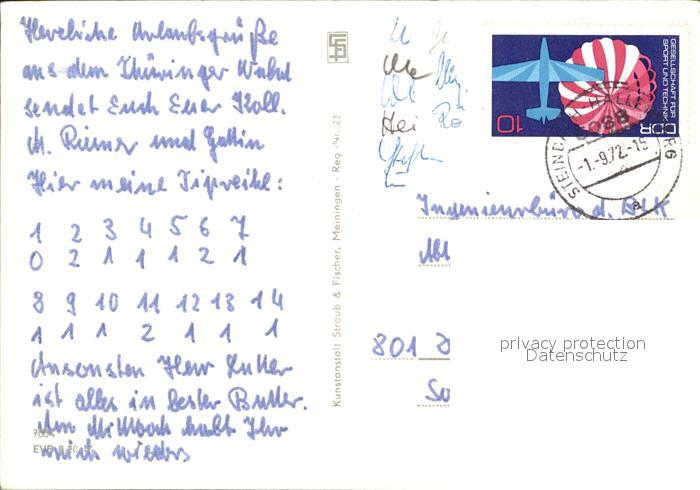 Herzliche Urlaubsgrüße
aus dem Thüringer Wald
sendet Euch Euer Koll.
M. Riemer und Gattin
Hier meine Tipreihe:
1 2 3 4 5 6 7
0 2 1 1 1 2 1
8 9 10 11 12 13 14
1 1 1 2 1 1 1
Ansonsten Herr
ist alles in bester Butter.
Am Mittwoch habt Ihr
mich wieder
Kunstanstalt Straub & Fischer, Meiningen · Reg.-Nr. 23
GESELLSCHAFT FÜR
SPORT UND TECHNIK
DDR
10
-1.-9.72.-15
a
Ingenieurbüro d.
801 D
privacy protection
Datenschutz